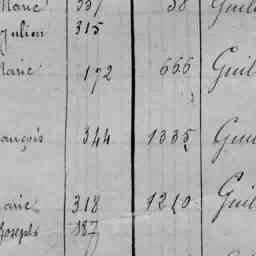 Marie 337 58 Guil
Julien 315
Marie 172 666 Guil
ançois 344 1335 Guil
arie 318 1210 Guil
Joseph 187